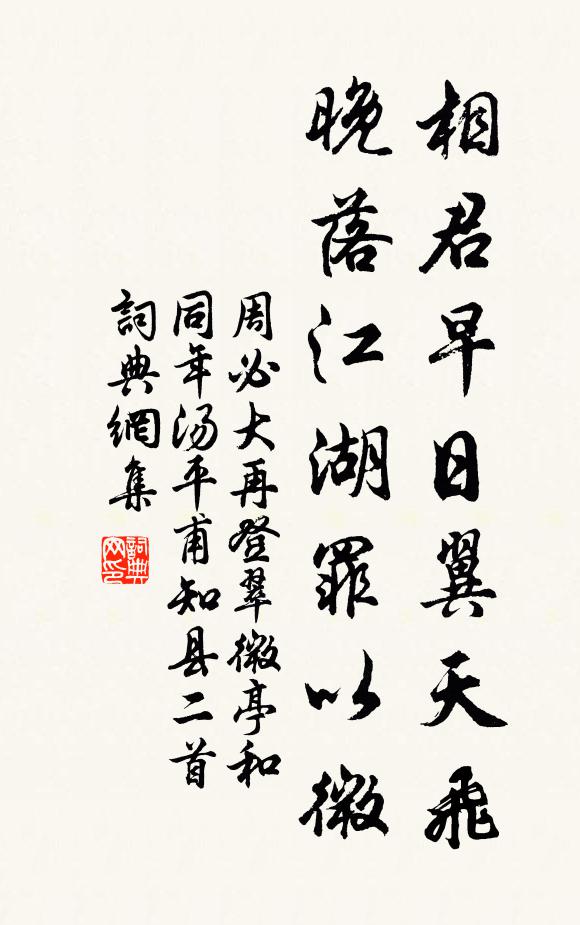 相君早日翼天飛
晚落江湖罪以微
周必大再登翠微亭和
同年汤平甫知县二首
詞典網集
詞典网印